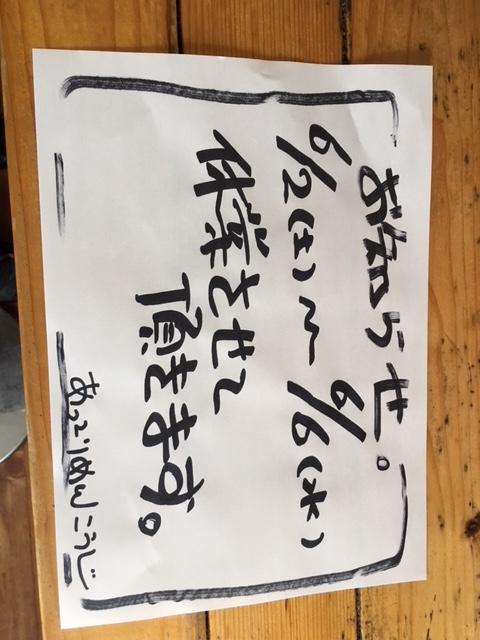 お知らせ。
6/2(土)〜6/6(水)
休業とせて
頂きます。
あっとりめんこうじ